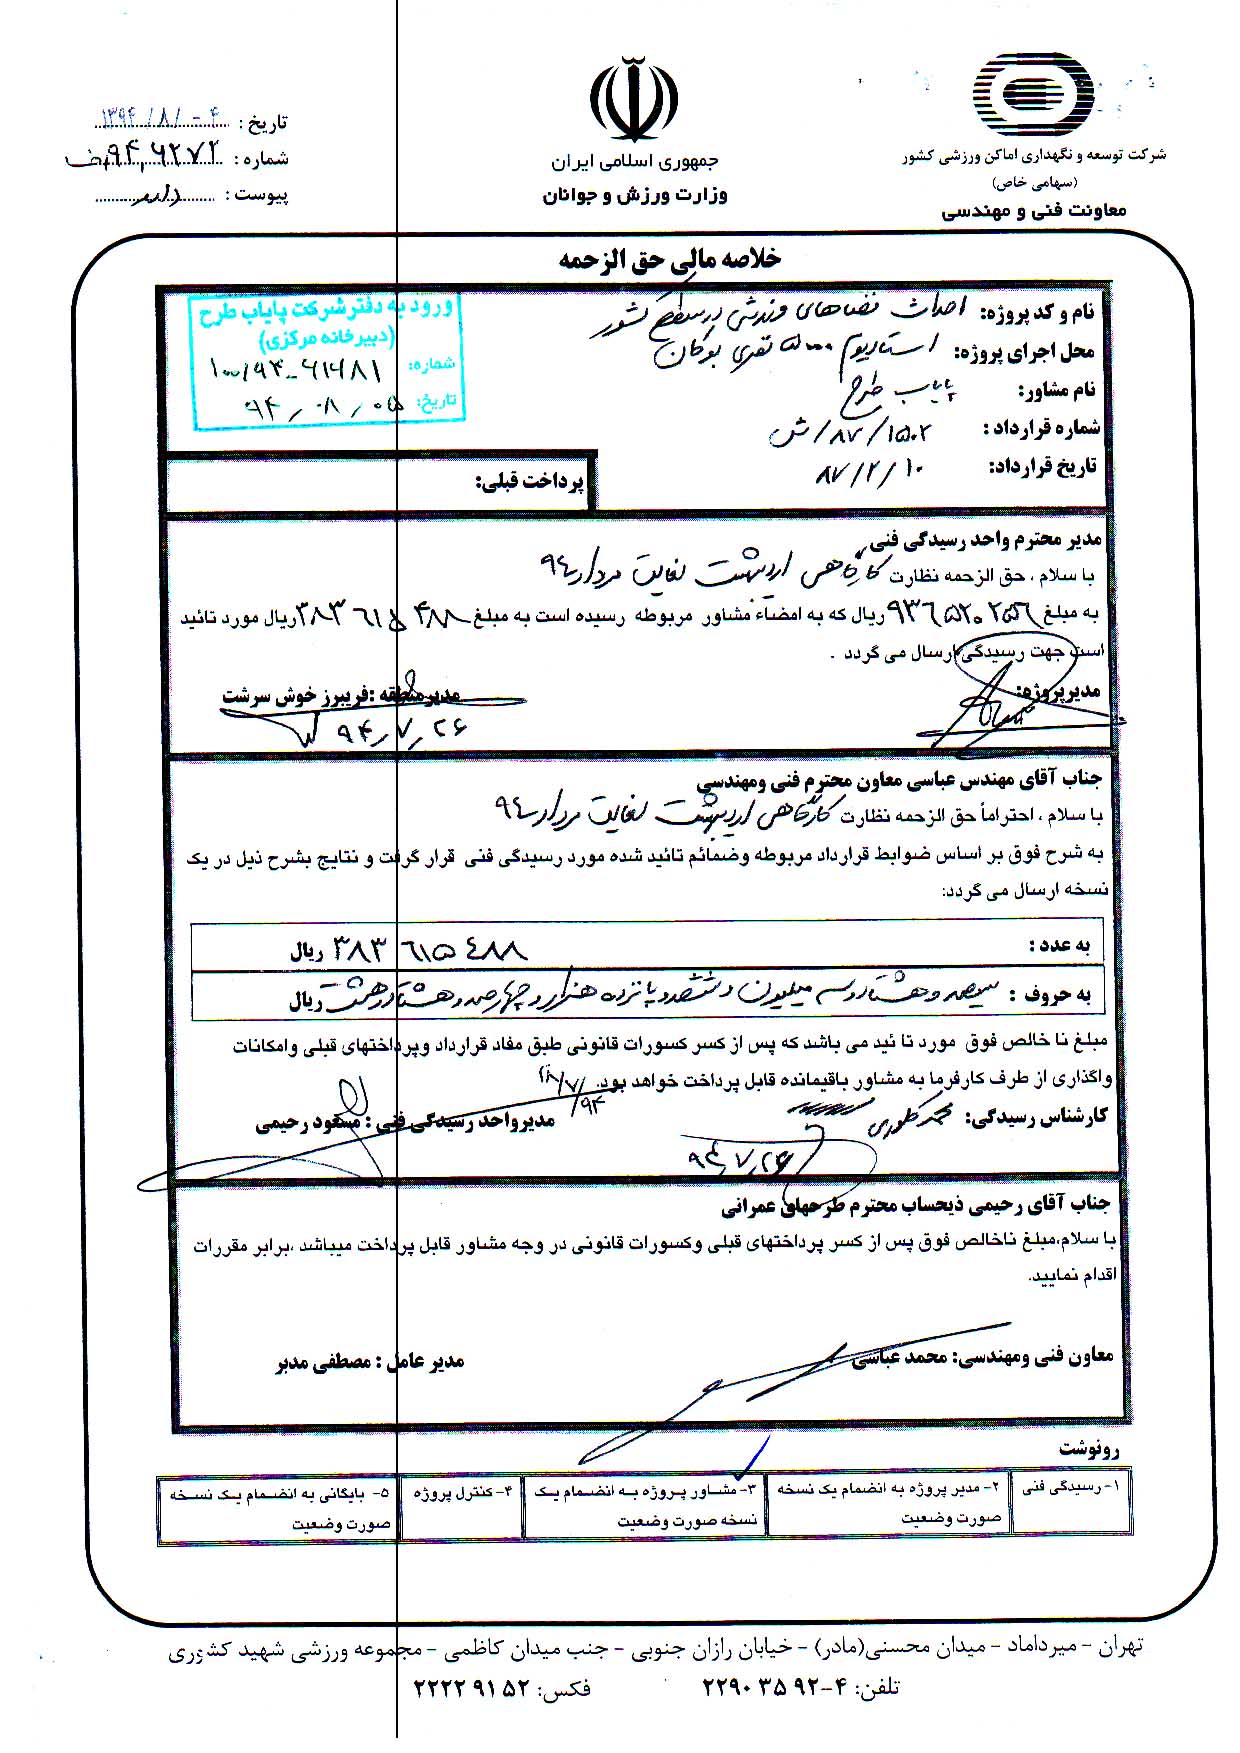 شرکت توسعه و نگهداری اماکن ورزشی کشور
(سهامی خاص)
معاونت فنی و مهندسی
جمهوری اسلامی ایران
وزارت ورزش و جوانان
تاریخ: ۱۳۹۴/۸/۰۴
شماره:
پیوست: دارد
خلاصه مالی حق الزحمه
نام و کد پروژه: احداث فضاهای ورزشی در سطح کشور
محل اجرای پروژه: استادیوم ۵۰۰۰ نفری بوکان
نام مشاور: پایاب طرح
شماره قرارداد: ۸۷/۱۵۰۲/ش
تاریخ قرارداد: ۸۷/۲/۱۰
ورود به دفتر شرکت پایاب طرح
(دبیرخانه مرکزی)
شماره: ۱۰۰/۹۴-۶۱۴۸۱
تاریخ: ۹۴/۰۸/۰۵
پرداخت قبلی:
مدیر محترم واحد رسیدگی فنی
با سلام ، حق الزحمه نظارت کارگاهی اردیبهشت لغایت مرداد ۹۴
به مبلغ ۹۳۶۵۲۰۲۵۶ ریال که به امضاء مشاور مربوطه رسیده است به مبلغ ۳۸۳۶۱۵۴۸۸ ریال مورد تائید
است جهت رسیدگی ارسال می گردد .
مدیرپروژه:
مدیرمنطقه :فریبرز خوش سرشت
۹۴/۷/۲۶
جناب آقای مهندس عباسی معاون محترم فنی ومهندسی
با سلام ، احتراماً حق الزحمه نظارت کارگاهی اردیبهشت لغایت مرداد ۹۴
به شرح فوق بر اساس ضوابط قرارداد مربوطه وضمائم تائید شده مورد رسیدگی فنی قرار گرفت و نتایج بشرح ذیل در یک
نسخه ارسال می گردد:
به عدد : ۳۸۳۶۱۵۴۸۸ ریال
به حروف : سیصد و هشتاد و سه میلیون و ششصد و پانزده هزار و چهارصد و هشتاد و هشت ریال
مبلغ نا خالص فوق مورد تا ئید می باشد که پس از کسر کسورات قانونی طبق مفاد قرارداد وپرداختهای قبلی وامکانات
واگذاری از طرف کارفرما به مشاور باقیمانده قابل پرداخت خواهد بود.
کارشناس رسیدگی:
۹۴/۷/۲۶
مدیرواحد رسیدگی فنی : مسعود رحیمی
جناب آقای رحیمی ذیحساب محترم طرحهای عمرانی
با سلام،مبلغ ناخالص فوق پس از کسر پرداختهای قبلی وکسورات قانونی در وجه مشاور قابل پرداخت میباشد ،برابر مقررات
اقدام نمایید.
معاون فنی ومهندسی: محمد عباسی
مدیر عامل : مصطفی مدبر
رونوشت
۱- رسیدگی فنی
۲- مدیر پروژه به انضمام یک نسخه
صورت وضعیت
۳- مشاور پروژه به انضمام یک
نسخه صورت وضعیت
۴- کنترل پروژه
۵- بایگانی به انضمام یک نسخه
صورت وضعیت
تهران - میرداماد - میدان محسنی(مادر) - خیابان رازان جنوبی - جنب میدان کاظمی - مجموعه ورزشی شهید کشوری
تلفن: ۴-۲۲۹۰۳۵۹۲ فکس: ۲۲۲۲۹۱۵۲